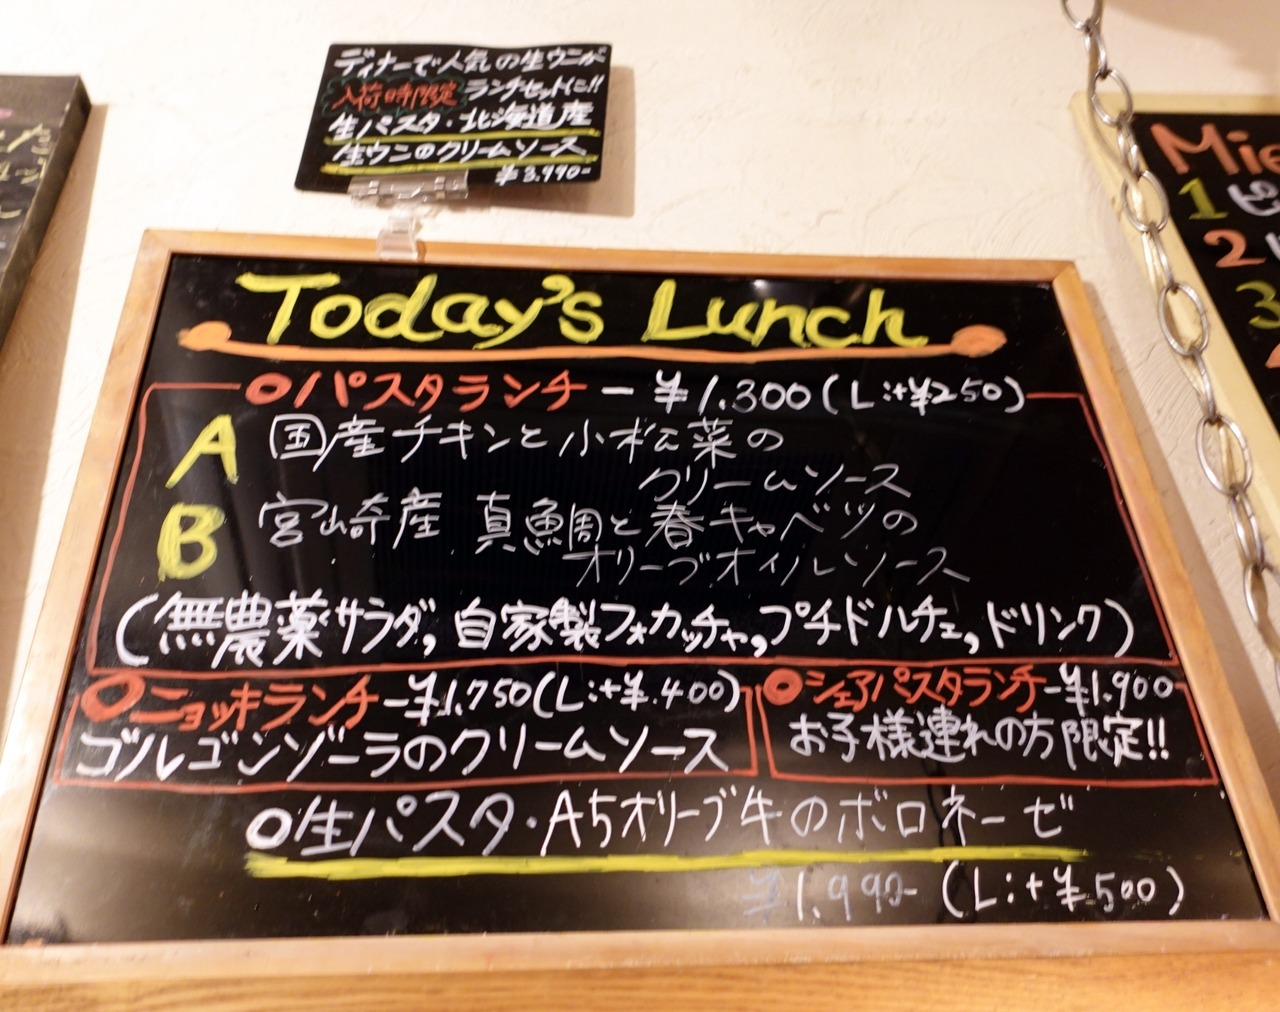 ディナーで人気の生ウニが
入荷時限定 ランチセットに!!
生パスタ・北海道産
生ウニのクリームソース
¥3.990-
Today's Lunch
○パスタランチ - ¥1.300(L:+¥250)
A 国産チキンと小松菜の
クリームソース
B 宮崎産 真鯛と春キャベツの
オリーブオイルソース
(無農薬サラダ, 自家製フォカッチャ, プチドルチェ, ドリンク)
○ニョッキランチ-¥1.750(L:+¥.400)
ゴルゴンゾーラのクリームソース
○シェアパスタランチ-¥1.900
お子様連れの方限定!!
○生パスタ・A5オリーブ牛のボロネーゼ
¥1.990- (L:+¥500)
Mie
1 ピ
2
3